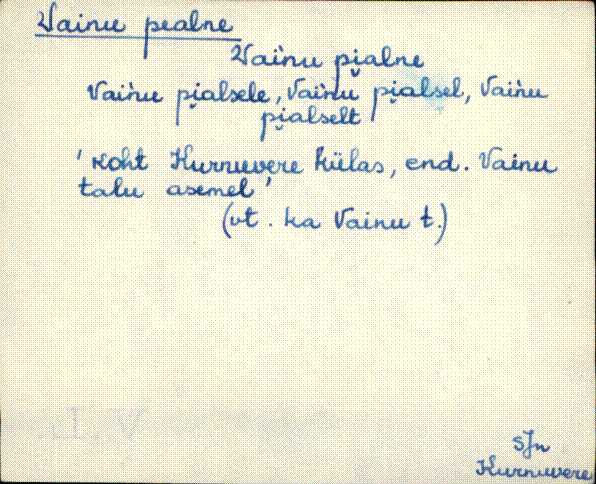 Vainu pealne
Vaìnu pi̮alne
Vaìnu pi̮alsele, Vaìnu pi̮alsel, Vaìnu
pi̮alselt
'koht Kurnuvere külas, end. Vainu
talu asemel'
(vt. ka Vainu t.)
SJn
Kurnuvere